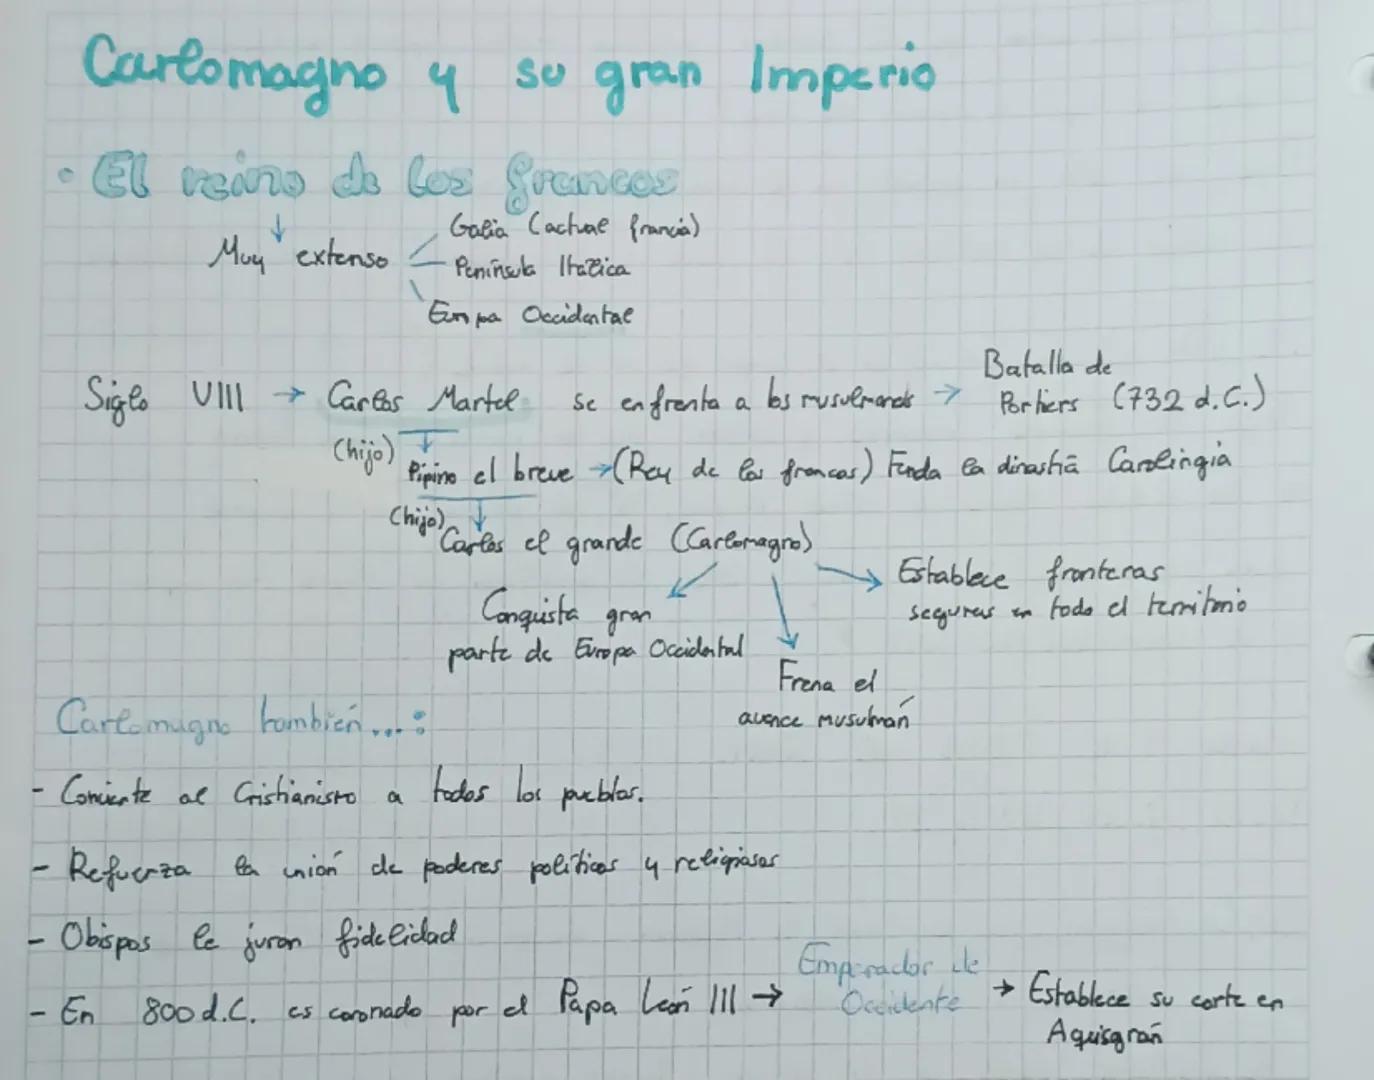 Carlomagno y su gran Imperio
· El reino de los francos
↓
Muy extenso
Galia (actual francia)
Península Itálica
Europa Occidental
Siglo VIII → Carlos Martel se enfrenta a los musulmanes → Batalla de
Portiers (732 d.C.)
(hijo) ↓
Pipino el breve → (Rey de los francos) Funda la dinastía Carolingia
(hijo) ↓
Carlos el grande (Carlomagno)
Conquista gran
parte de Europa Occidental
Frena el
avance musulmán
Establece fronteras
seguras en todo el territorio
Carlomagno también...:
- Convierte al Cristianismo a todos los pueblos.
- Refuerza la unión de poderes políticos y religiosos
- Obispos le juran fidelidad
- En 800 d.C. es coronado por el Papa León III → Emperador de
Occidente → Establece su corte en
Aquisgrán